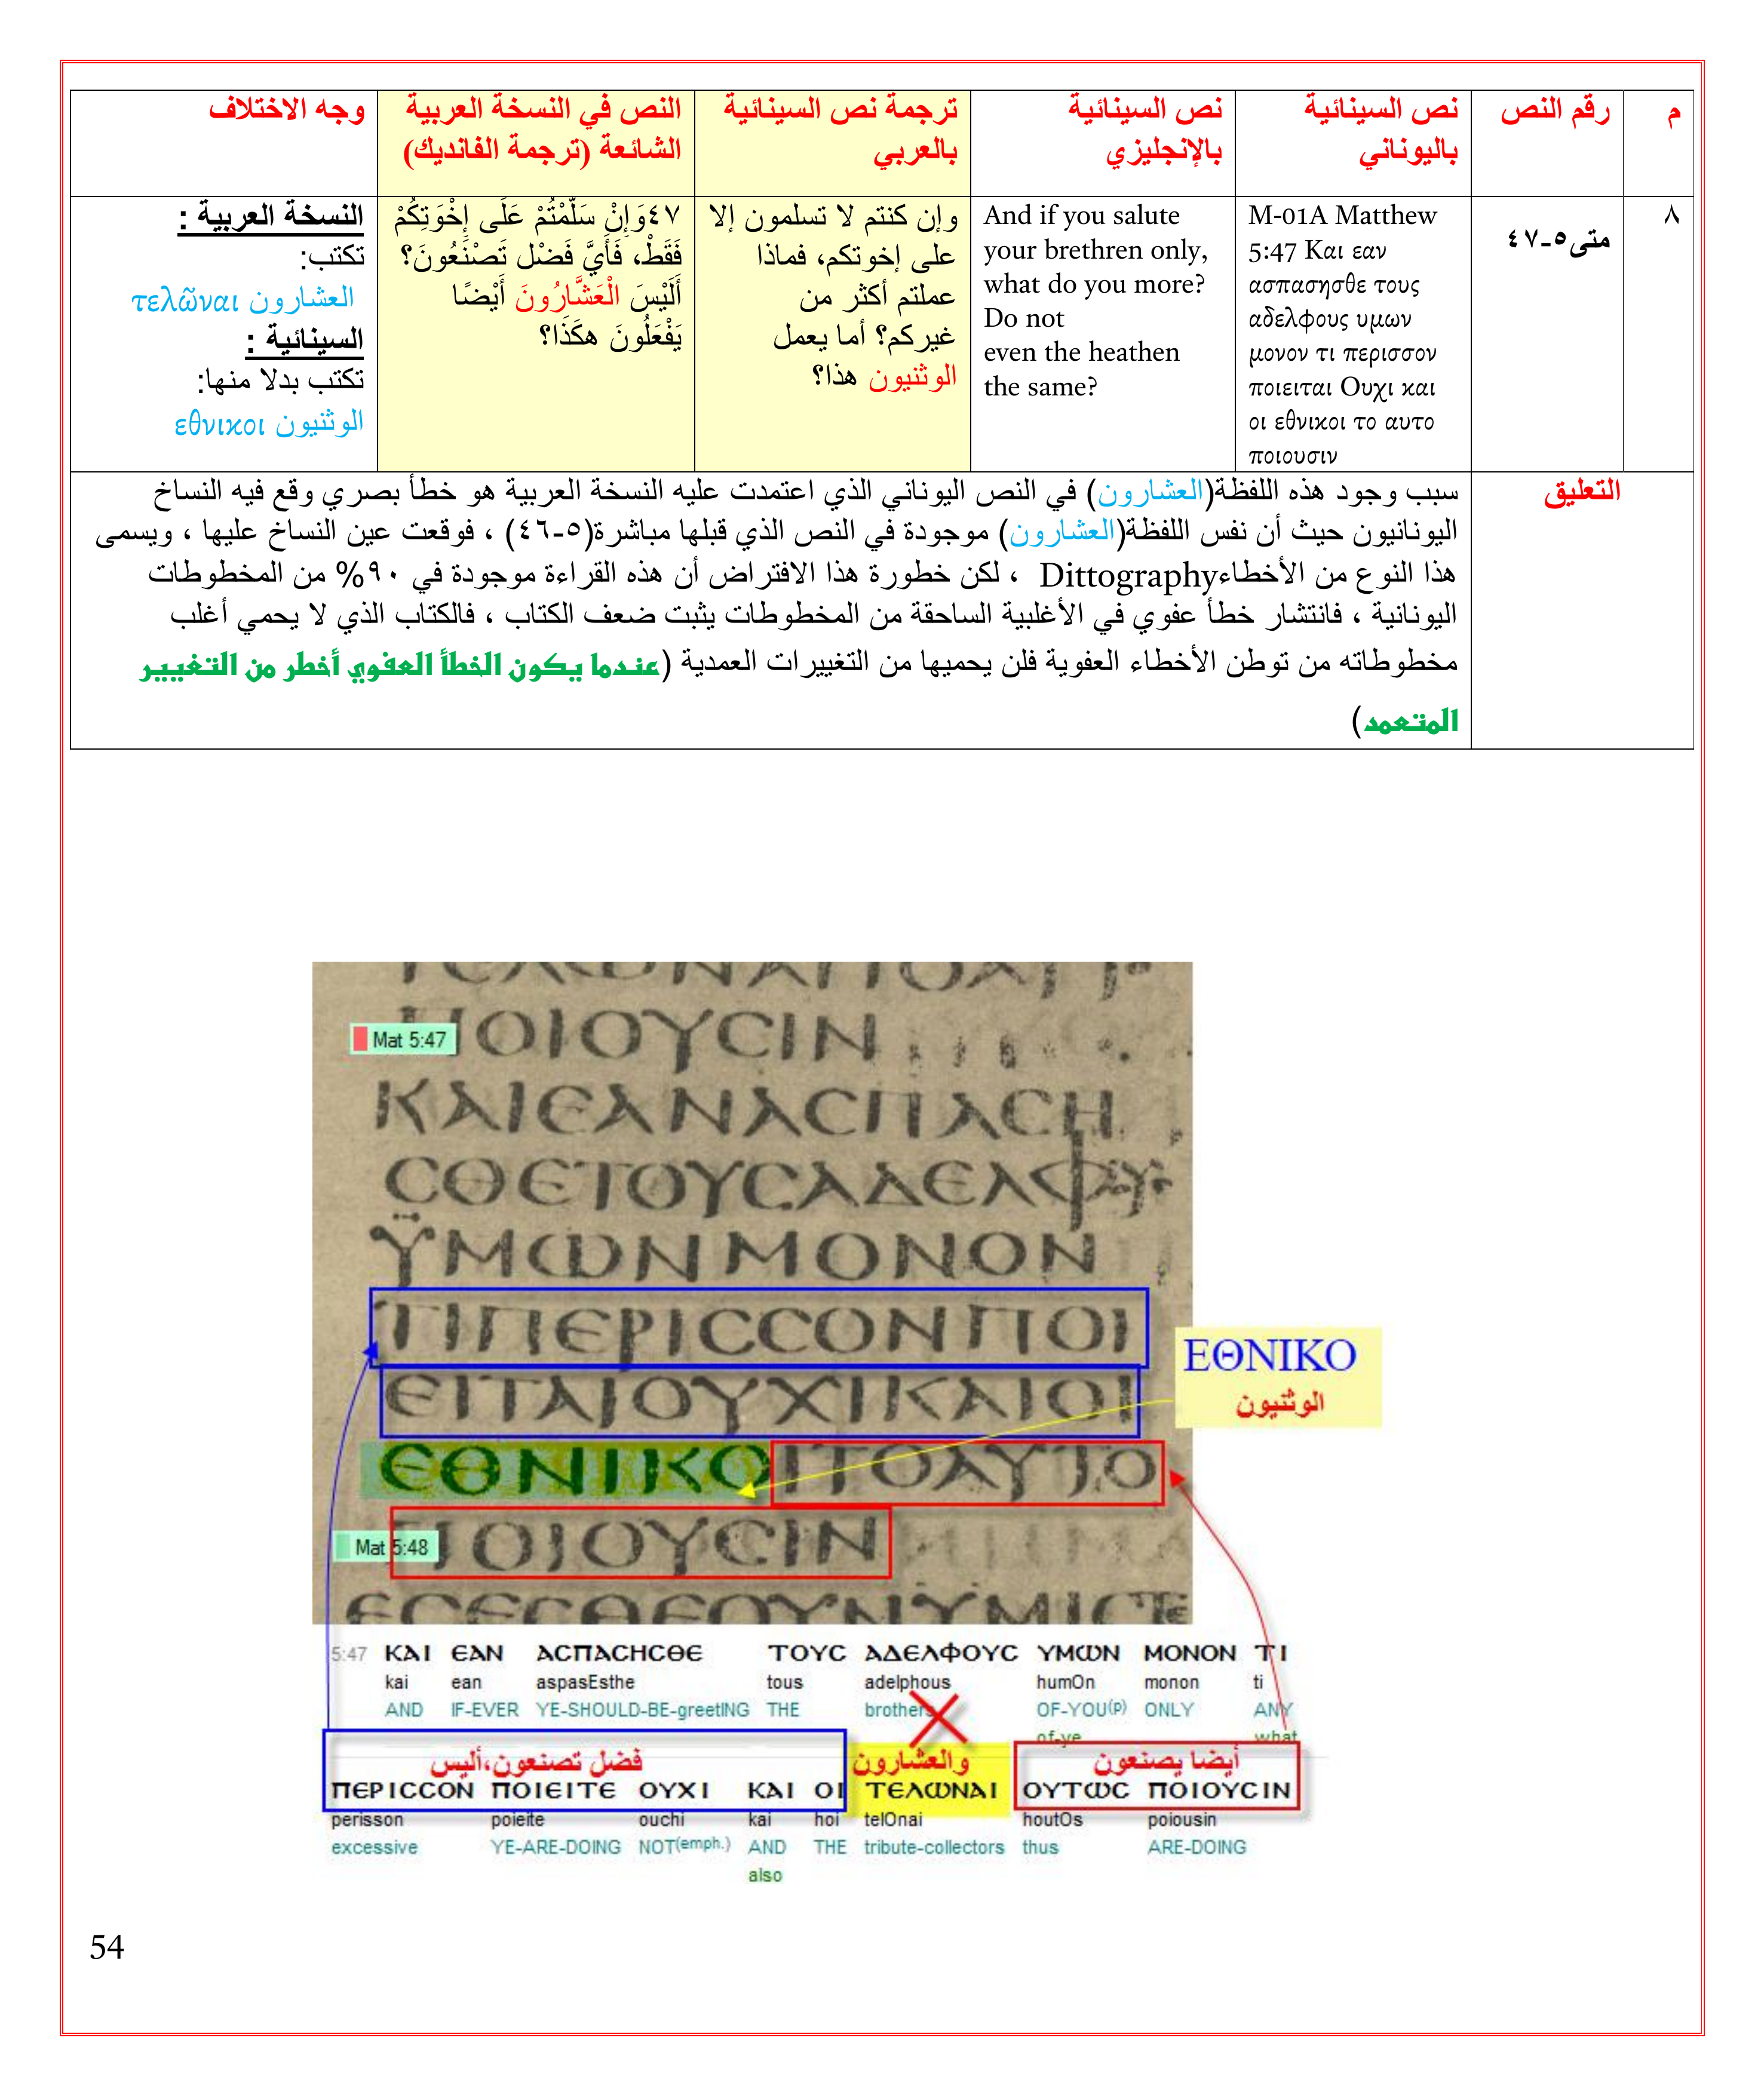 م
رقم النص
نص السينائية
باليوناني
نص السينائية
بالإنجليزي
ترجمة نص السينائية
بالعربي
النص في النسخة العربية
الشائعة (ترجمة الفانديك)
وجه الاختلاف
٨
متى٥-٤٧
M-01A Matthew
5:47 Και εαν
ασπασησθε τους
αδελφους υμων
μονον τι περισσον
ποιειται Ουχι και
οι εθνικοι το αυτο
ποιουσιν
And if you salute
your brethren only,
what do you more?
Do not
even the heathen
the same?
وإن كنتم لا تسلمون إلا
على إخوتكم، فماذا
عملتم أكثر من
غيركم؟ أما يعمل
الوثنيون هذا؟
٤٧وَإِنْ سَلَّمْتُمْ عَلَى إِخْوَتِكُمْ
فَقَطْ، فَأَيَّ فَضْل تَصْنَعُونَ؟
أَلَيْسَ الْعَشَّارُونَ أَيْضًا
يَفْعَلُونَ هكَذَا؟
النسخة العربية :
تكتب:
العشارون τελῶναι
السينائية :
تكتب بدلا منها:
الوثنيون εθνικοι
التعليق
سبب وجود هذه اللفظة(العشارون) في النص اليوناني الذي اعتمدت عليه النسخة العربية هو خطأ بصري وقع فيه النساخ
اليونانيون حيث أن نفس اللفظة(العشارون) موجودة في النص الذي قبلها مباشرة(٥-٤٦) ، فوقعت عين النساخ عليها ، ويسمى
هذا النوع من الأخطاءDittography ، لكن خطورة هذا الافتراض أن هذه القراءة موجودة في ٩٠% من المخطوطات
اليونانية ، فانتشار خطأ عفوي في الأغلبية الساحقة من المخطوطات يثبت ضعف الكتاب ، فالكتاب الذي لا يحمي أغلب
مخطوطاته من توطن الأخطاء العفوية فلن يحميها من التغييرات العمدية (عندما يكون الخطأ العفوي أخطر من التغيير
المتعمد)
Mat 5:47
ΠΟΙΟΥϹΙΝ
ΚΑΙΕΑΝΑϹΠΑϹΗ
ϹΘΕΤΟΥϹΑΔΕΛΦΥ
ΫΜΩΝΜΟΝΟΝ
ΤΙΠΕΡΙϹϹΟΝΠΟΙ
ΕΙΤΑΙΟΥΧΙΚΑΙΟΙ
ΕΘΝΙΚΟΙΤΟΑΥΤΟ
Mat 5:48
ΠΟΙΟΥϹΙΝ
ΕΘΝΙΚΟ
الوثنيون
5:47 ΚΑΙ ΕΑΝ ΑϹΠΑϹΗϹΘΕ ΤΟΥϹ ΑΔΕΛΦΟΥϹ ΥΜΩΝ ΜΟΝΟΝ ΤΙ
kai ean aspasEsthe tous adelphous humOn monon ti
AND IF-EVER YE-SHOULD-BE-greetING THE brothers OF-YOU(p) ONLY ANY
of-ye what
فضل تصنعون،أليس
والعشارون
أيضا يصنعون
ΠΕΡΙϹϹΟΝ ΠΟΙΕΙΤΕ ΟΥΧΙ ΚΑΙ ΟΙ ΤΕΛΩΝΑΙ ΟΥΤΩϹ ΠΟΙΟΥϹΙΝ
perisson poieite ouchi kai hoi telOnai houtOs poiousin
excessive YE-ARE-DOING NOT(emph.) AND THE tribute-collectors thus ARE-DOING
also
54